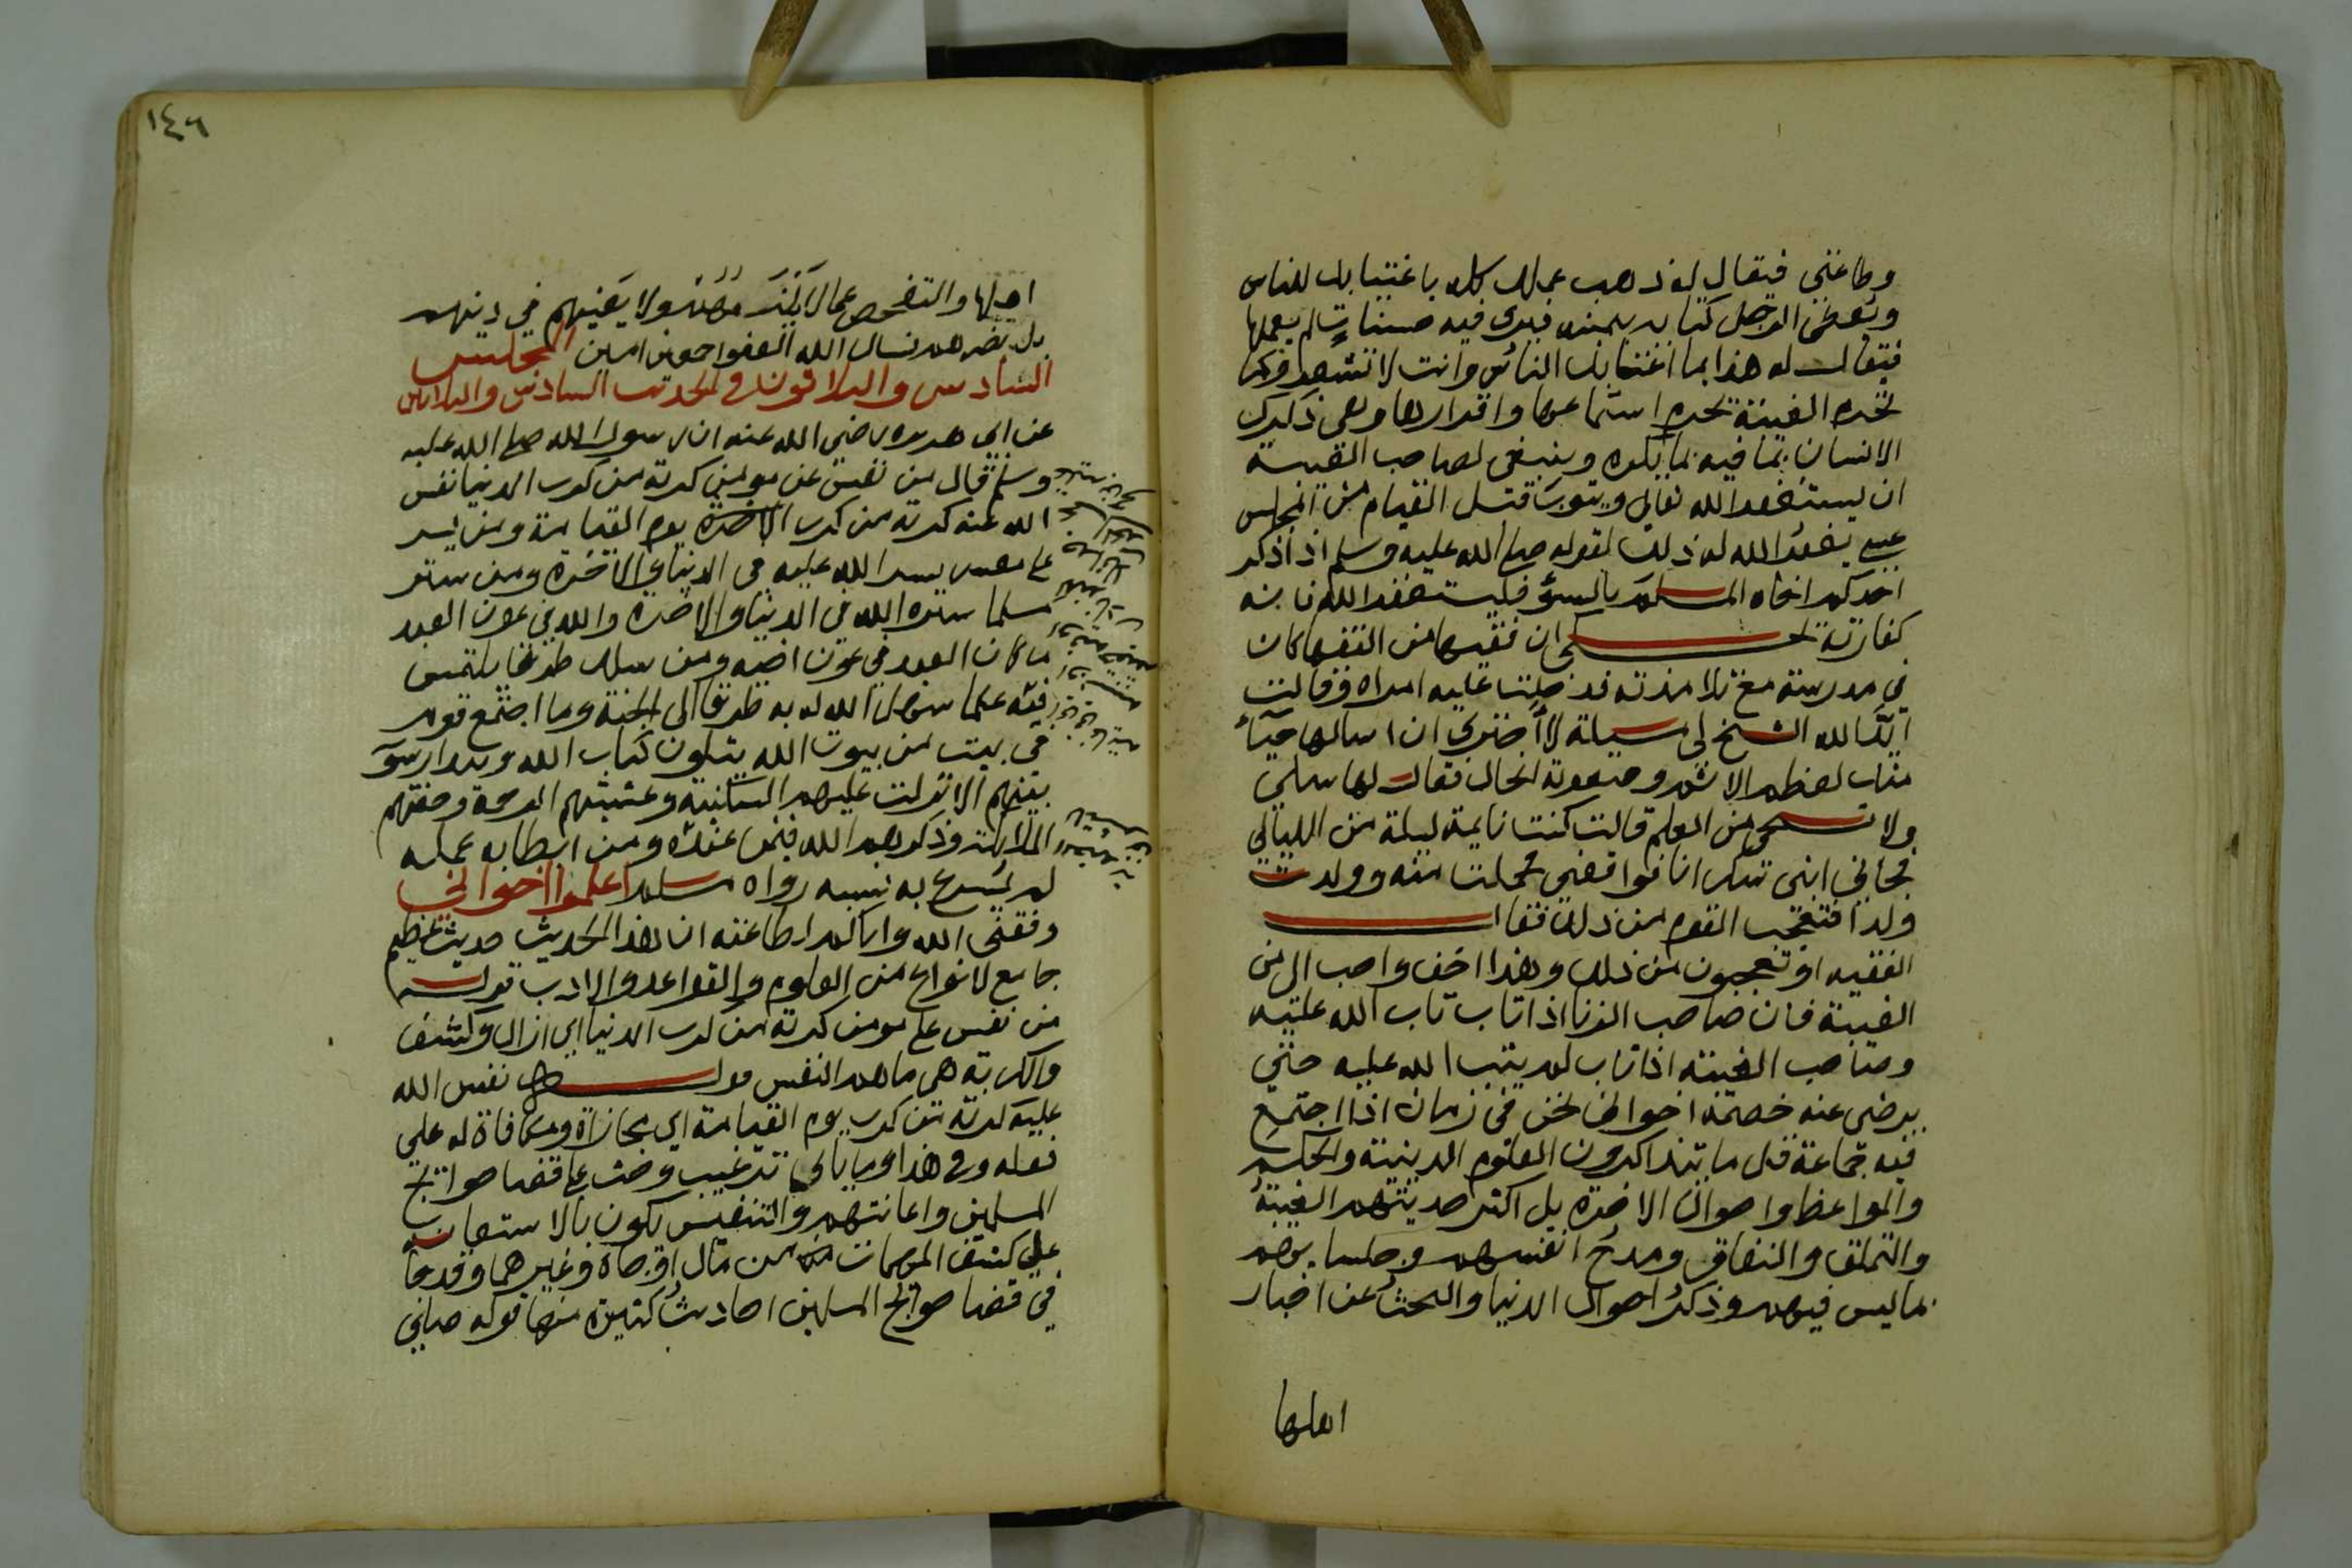 وطاعتي فيقال له ذهب عملك كله باغتيابك للناس
ويعطى الرجل كتابه بيمينه فيرى فيه حسنات لم يعملها
فيقال له هذا بما اغتابك الناس وانت لا تشعر وكما
تحرم الغيبة يحرم استماعها واقرارها وهي ذكرك
الانسان بما فيه بما يكره وينبغي لصاحب الغيبة
ان يستغفر الله تعالى ويتوب قبل القيام من المجلس
عسى يغفر الله له ذلك لقوله صلى الله عليه وسلم اذا ذكر
احدكم اخاه المسلم بالسوء فليستغفر الله فانه
كفارته حكي ان فقيها من الفقها كان
في مدرسة مع تلامذته فدخلت عليه امراة وقالت
ايد الله الشيخ لي مسيلة لا اجتري ان اسالها حيآء
منك لعظم الاثم وصعوبة الحال فقال لها سلي
ولا تستحي من العلم قالت كنت نايمة ليلة من الليالي
فجاني ابني سكرانا فواقعني فحملت منه وولدت
ولدا فتعجب القوم من ذلك فقال
الفقيه اوتعجبون من ذلك وهذا اخف واحب الي من
الغيبة فان صاحب الزنا اذا تاب تاب الله عليه
وصاحب الغيبة اذا تاب لم يتب الله عليه حتى
يرضى عنه خصمه اخواني نحن في زمان اذا اجتمع
فيه جماعة قل ما يتذاكرون العلوم الدينية والحكم
والمواعظ واحوال الاخرة بل اكثر حديثهم الغيبة
والتملق والنفاق ومدح انفسهم وجلسايهم
بما ليس فيهم وذكر احوال الدنيا والبحث عن اخبار
اهلها
١٤٦
اهلها والتفحص عما لا يعنيهم في دينهم
بل يضرهم نسال الله العفو امين المجلس
السادس والثلاثون في الحديث السادس والثلاثين
عن ابي هريرة رضي الله عنه ان رسول الله صلى الله عليه
وسلم قال من نفس عن مومن كربة من كرب الدنيا نفس
الله عنه كربة من كرب الاخرة يوم القيامة ومن يسر
على معسر يسر الله عليه في الدنيا والاخرة ومن ستر
مسلما ستره الله في الدنيا والاخرة والله في عون العبد
ما كان العبد في عون اخيه ومن سلك طريقا يلتمس
فيه علما سهل الله له به طريقا الى الجنة وما اجتمع قوم
في بيت من بيوت الله يتلون كتاب الله ويتدارسونه
بينهم الا نزلت عليهم السكينة وغشيتهم الرحمة وحفتهم
الملايكة وذكرهم الله فيمن عنده ومن ابطا به عمله
لم يسرع به نسبه رواه مسلم اعلموا اخواني
وفقني الله واياكم لطاعته ان هذا الحديث حديث عظيم
جامع لانواع من العلوم والقواعد والادب قوله
من نفس على مومن كربة من كرب الدنيا اي ازال وكشف
والكربة هي ما اهم النفس قوله نفس الله
عليه كربة من كرب يوم القيامة اي مجازاة ومكافاة له على
فعله وفي هذا وما ياتي ترغيب وحث على قضا حوايج
المسلمين واعانتهم والتنفيس يكون بالاستعانه
على كشف المهمات من مال او جاه وغيرهما وقد جا
في قضا حوايج المسلمين احاديث كثيرة منها قوله صلى